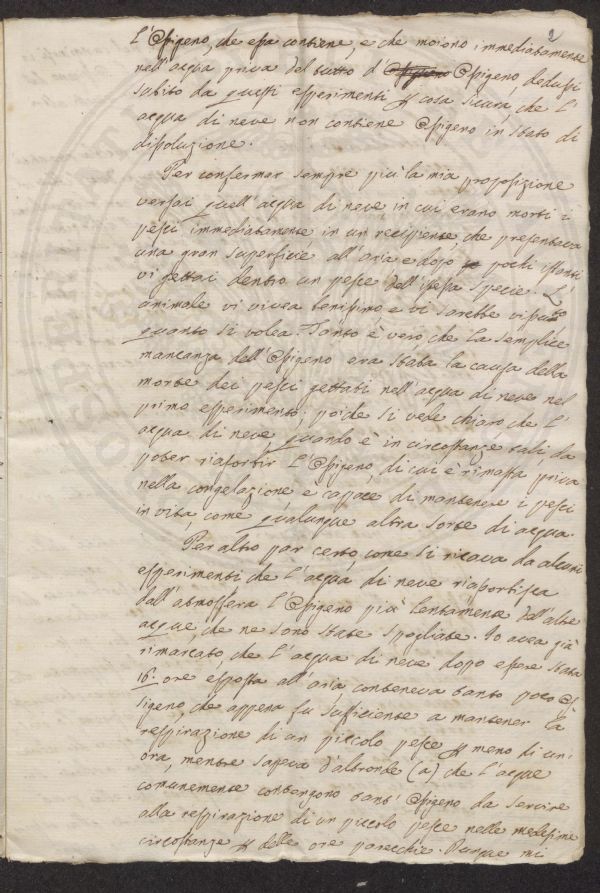 2
L'Ossigeno, che essa contiene, e che moiono immediatamente
nell'acqua priva del tutto d'Ossigeno, dedussi
subito da questi esperimenti p cosa sicura, che l'
acqua di neve non contiene Ossigeno in stato di
dissoluzione.
Per confermar sempre più la mia proposizione
versai quell'acqua di neve, in cui erano morti i
pesci immediatamente in un recipiente, che presentava
una gran superficie all'aria e dopo pochi istanti
vi gettai dentro un pesce dell'istessa specie. L'
animale vi vivea benissimo e vi sarebbe vissuto
quanto si volea. Tanto è vero che la semplice
mancanza dell'Ossigeno era stata la causa della
morte dei pesci gettati nell'acqua di neve nel
primo esperimento; poiche si vede chiaro, che l'
acqua di neve, quando è in circostanze tali, da
poter riassorbir l'Ossigeno, di cui è rimasta priva
nella congelazione è capace di mantenere i pesci
in vita, come qualunque altra sorte di acqua.
Per altro par certo, come si ricava da alcuni
esperimenti che l'acqua di neve riassorbisca
dall'atmosfera l'Ossigeno più lentamente dell'altre
acque, che ne sono state spogliate. Io avea già
rimarcato, che l'acqua di neve dopo essere stata
16. ore esposta all'aria conteneva tanto poco Os
sigeno, che appena fu sufficiente a mantener la
respirazione di un piccolo pesce p meno di un'
ora, mentre sapeva d'altronde (a) che l'acque
comunemente contengono tant'Ossigeno da servire
alla respirazione di un piccolo pesce nelle medesime
circostanze p delle ore parecchie. Dunque mi